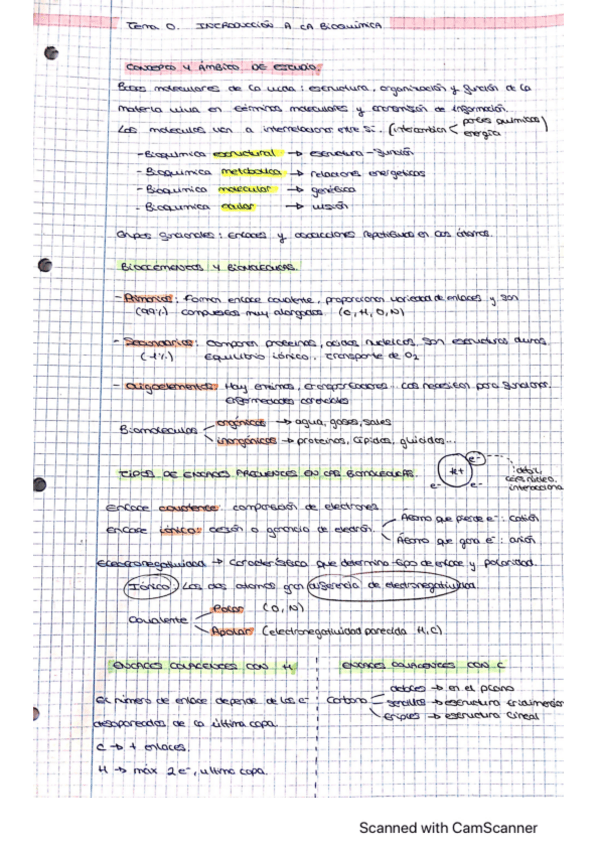 TEMA 0. INTRODUCCIÓN A LA BIOQUÍMICA
CONCEPTO Y ÁMBITO DE ESTUDIO
Bases moleculares de la vida: estructura, organización y función de la
materia viva en términos moleculares y transmisión de información.
Las moleculas van a interrelacionar entre sí. (intercambian < partes químicas)
energía
- Bioquímica estructural → estructura - función
- Bioquímica metabólica → relaciones energéticas
- Bioquímica molecular → genética
- Bioquímica celular →
Grupos funcionales: enlaces y repetitivas en los átomos.
BIOELEMENTOS Y BIOMOLÉCULAS.
- Primarios: Forman enlace covalente, proporcionan variedad de enlaces y son
(99%) compuestos muy alargados (C, H, O, N)
- Secundarios: componen proteinas, acidos nucleicos, son estructuras duras
(~1%) equilibrio iónico, transporte de O2
- Oligoelementos: Hay enzimas, transportadores... los necesitan para funcionar.
enfermedades carenciales
Biomoleculas
orgánicas → agua, gases, sales
inorgánicas → proteinas, lípidos, glúcidos...
TIPOS DE ENLACES FRECUENTES EN LAS BIOMOLÉCULAS.
K+ e- e- e-
núcleo,
interacciona
enlace covalente: compartición de electrones
enlace iónico: cesión o ganancia de electrón.
Átomo que pierde e-: catión
Átomo que gana e-: anión
Electronegatividad → Característica que determina tipo de enlace y polaridad.
Iónico: Los dos átomos gran diferencia de electronegatividad
Covalente
Polar (O, N)
Apolar (electronegatividad parecida H, C)
ENLACES COVALENTES CON H
ENLACES COVALENTES CON C
El número de enlace depende de los e-
desapareados de la última capa.
C → + enlaces.
H → máx 2e-, ultima capa.
Carbono
dobles → en el plano
sencillos → estructura tridimension
triples → estructura lineal
Scanned with CamScanner